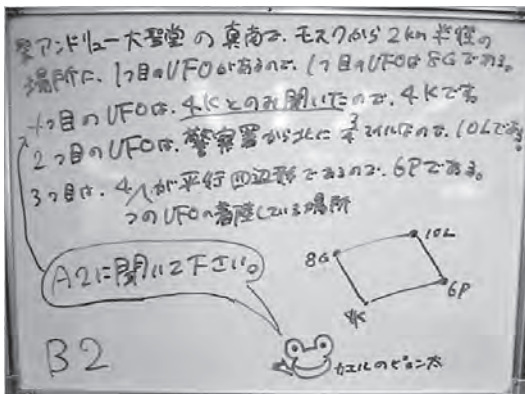 聖アンドリュー大聖堂の真南で、モスクから2km半径の
場所に、1つ目のUFOがあるので、1つ目のUFOは8Gである。
4つ目のUFOは、4Kとのみ聞いたので、4Kです。
2つ目のUFOは、警察署から北に3/4マイルなので、10Lである。
3つ目は、4つが平行四辺形であるので、6Pである。
つのUFOの着陸している場所
A2に聞いて下さい。
10L
8G
6P
4K
カエルのピョン太
B2